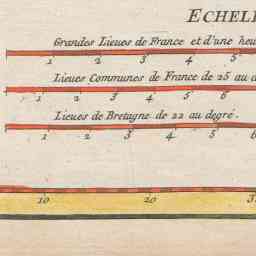 ECHELL
Grandes Lieues de France et d'une heu
1 2 3 4 5
Lieues Communes de France de 25 au d
1 2 3 4 5 6
Lieues de Bretagne de 22 au degré.
1 2 3 4 5 6
10 20 3